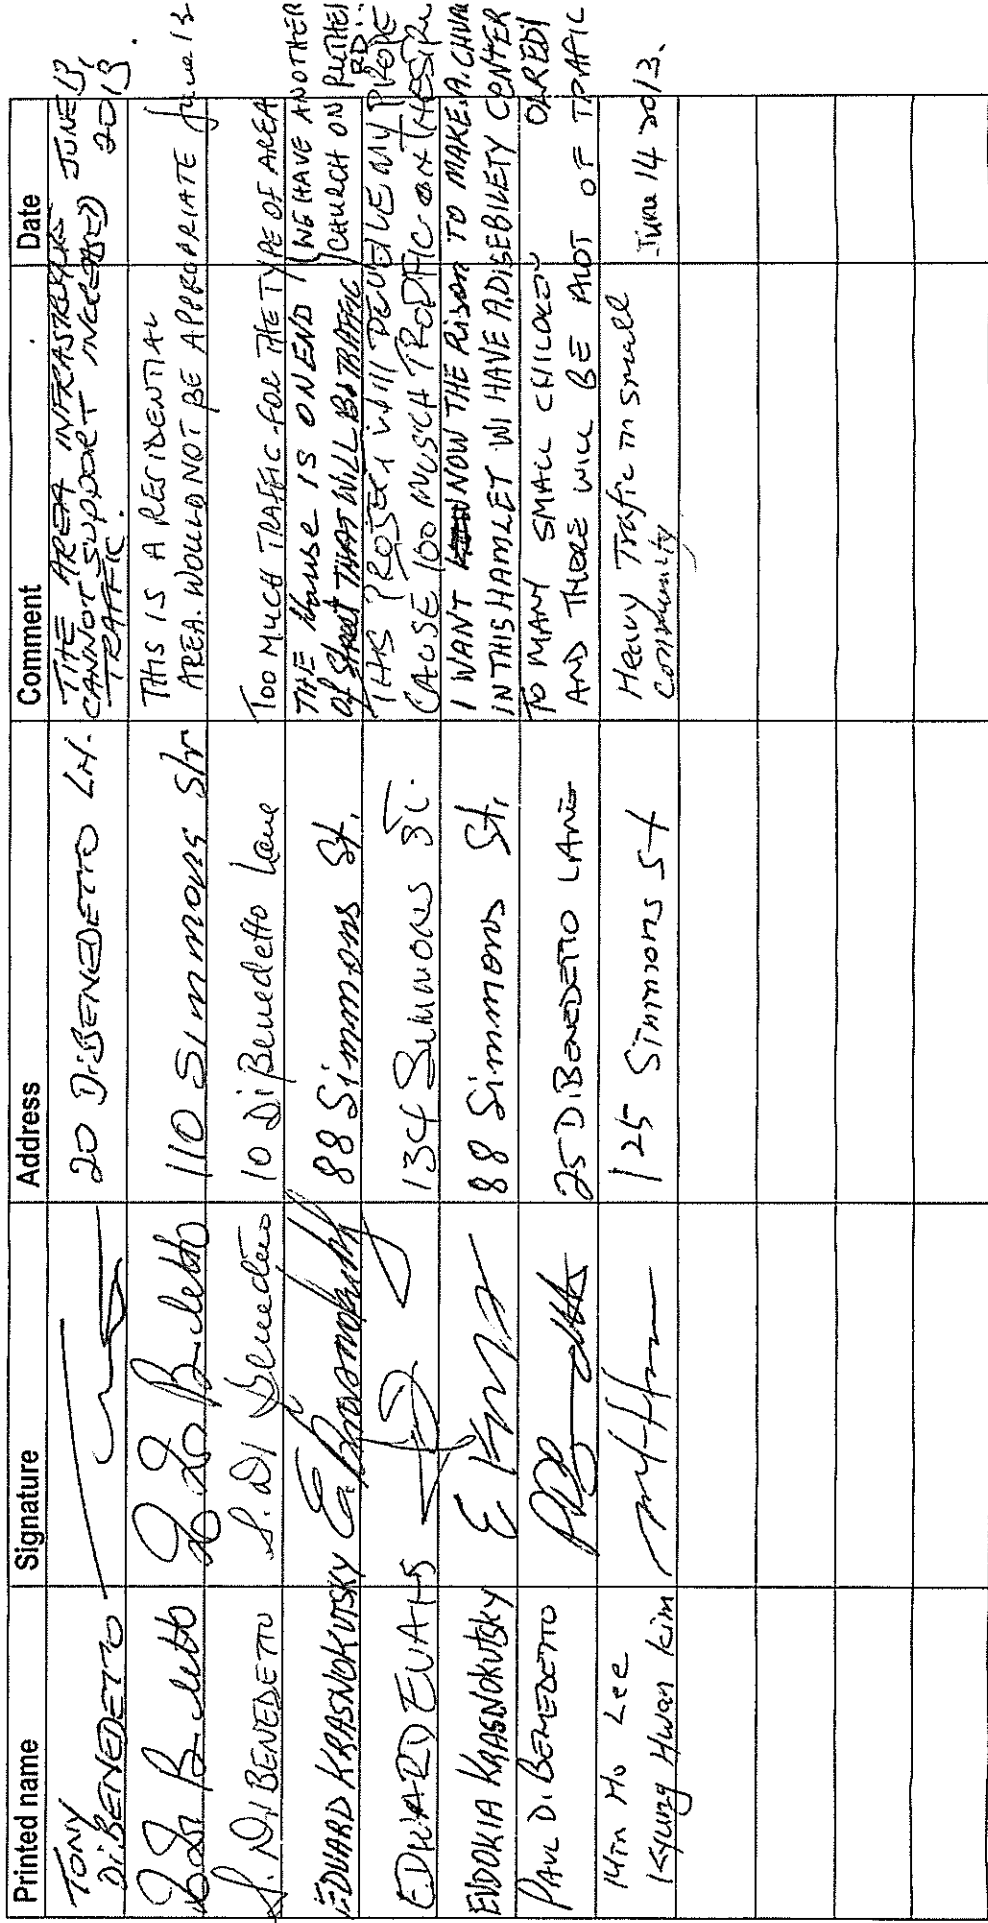 Printed name Signature Address Comment Date
TONY
DiBENEDETTO
20 DiBENEDETTO LN.
THE AREA INFRASTRUCTURE
CANNOT SUPPORT INCREASED
TRAFFIC.
JUNE 13,
2013.
110 SIMMONS Str
THIS IS A RESIDENTIAL
AREA. WOULD NOT BE APPROPRIATE June 13
S. DI BENEDETTO
S. Di Benedetto
10 DiBenedetto Lane
TOO MUCH TRAFFIC FOR THE TYPE OF AREA
EDUARD KRASNOKUTSKY
88 Simmons St.
THE House IS ON END
of Street THAT WILL Be TRAFFIC
WE HAVE ANOTHER
CHURCH ON RUTHER
RD!!
EDWARD EVANS
134 Simmons St.
THIS PROJECT WILL DEVEILE MY PROPE
CAUSE TOO MUSCH TRODFIC ON THESIRE
EVDOKIA KRASNOKUTSKY
88 Simmons St.
I WANT NOW THE Rison TO MAKE A CHUR
IN THIS HAMLET WI HAVE A DISEBILETY CENTER
OLREDY
PAUL DI BENEDETTO
25 DIBENEDETTO LANE
TO MANY SMALL CHILDREN
AND THERE WILL BE ALOT OF TRAFFIC
Min Ho Lee
Kyung Hwan Kim
125 Simmons St
Heavy Trafic in small
community
June 14 2013.